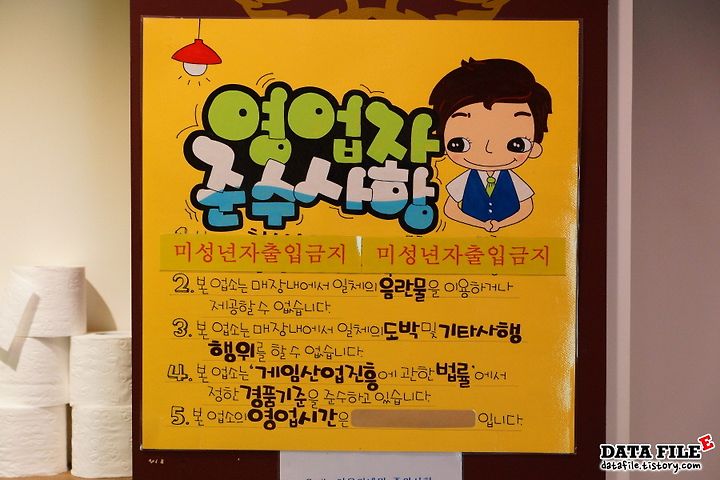 영업자
준수사항
1.
미성년자출입금지 미성년자출입금지
2. 본 업소는 매장내에서 일체의 음란물을 이용하거나
제공할 수 없습니다.
3. 본 업소는 매장내에서 일체의 도박 및 기타사행
행위를 할 수 없습니다.
4. 본 업소는 '게임산업진흥에 관한 법률'에서
정한 경품기준을 준수하고 있습니다.
5. 본 업소의 영업시간은 입니다.
DATA FILE
datafile.tistory.com